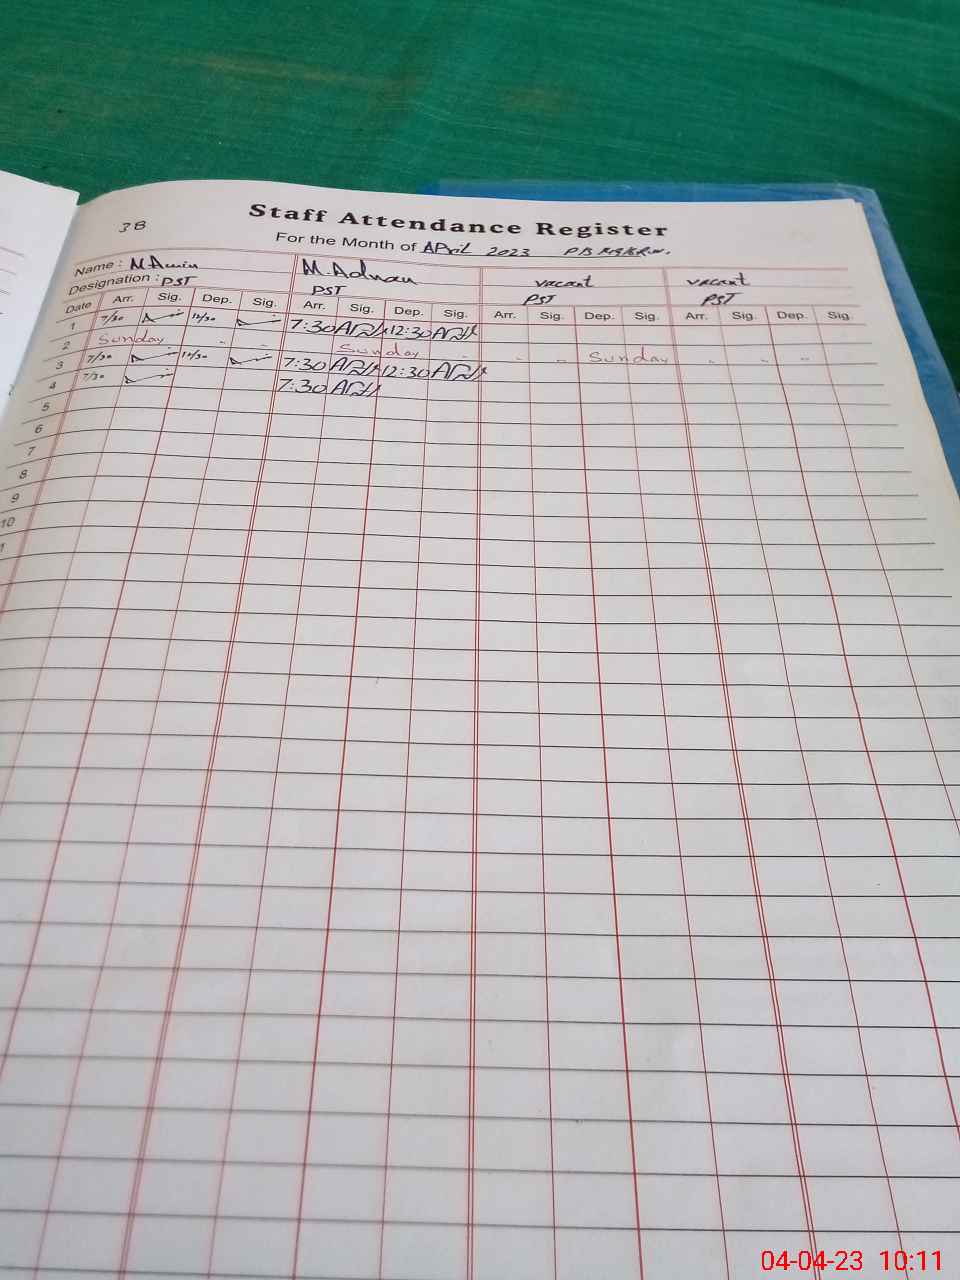 38
Staff Attendance Register
For the Month of April 2023
Name : M Amin M. Adnan vacant vacant
Designation : PST PST PST PST
Date Arr. Sig. Dep. Sig. Arr. Sig. Dep. Sig. Arr. Sig. Dep. Sig. Arr. Sig. Dep. Sig.
1 7/30 12/30 7:30 12:30
2 Sunday Sunday Sunday
3 7/30 12/30 7:30 12:30
4 7/30 7:30
5
6
7
8
9
10
04-04-23 10:11